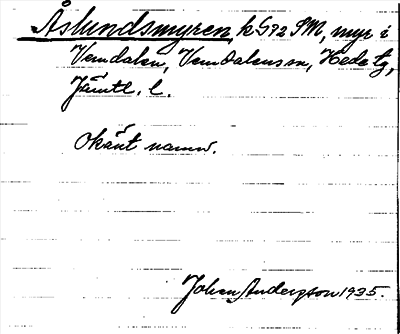 Åslundsmyren, k G92 SM, myr i
Vemdalen, Vemdalens sn, Hede tg,
Jämtl. l.
Okänt namn.
Johan Andersson 1935.